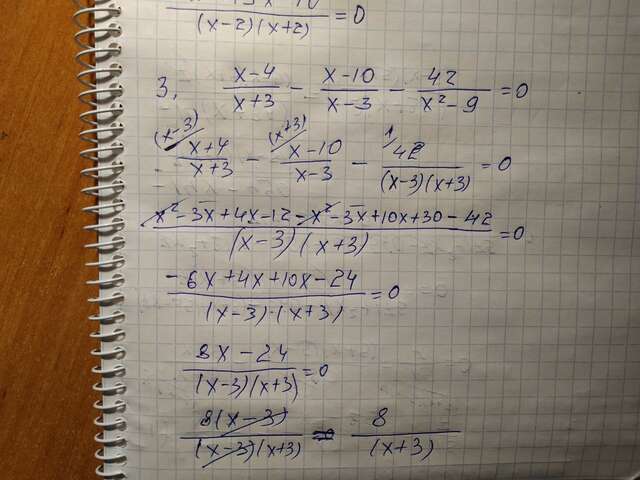 (x-2)(x+2) =0
3, x-4/x+3 - x-10/x-3 - 42/x²-9 =0
(x-3)/ x+4/x+3 - (x+3)/ x-10/x-3 - 1/ 42/(x-3)(x+3) =0
x²-3x+4x-12-x²-3x+10x+30-42/(x-3)(x+3) =0
-6x+4x+10x-24/(x-3)·(x+3) =0
8x-24/(x-3)(x+3) =0
8(x-3)/(x-3)(x+3) = 8/(x+3)